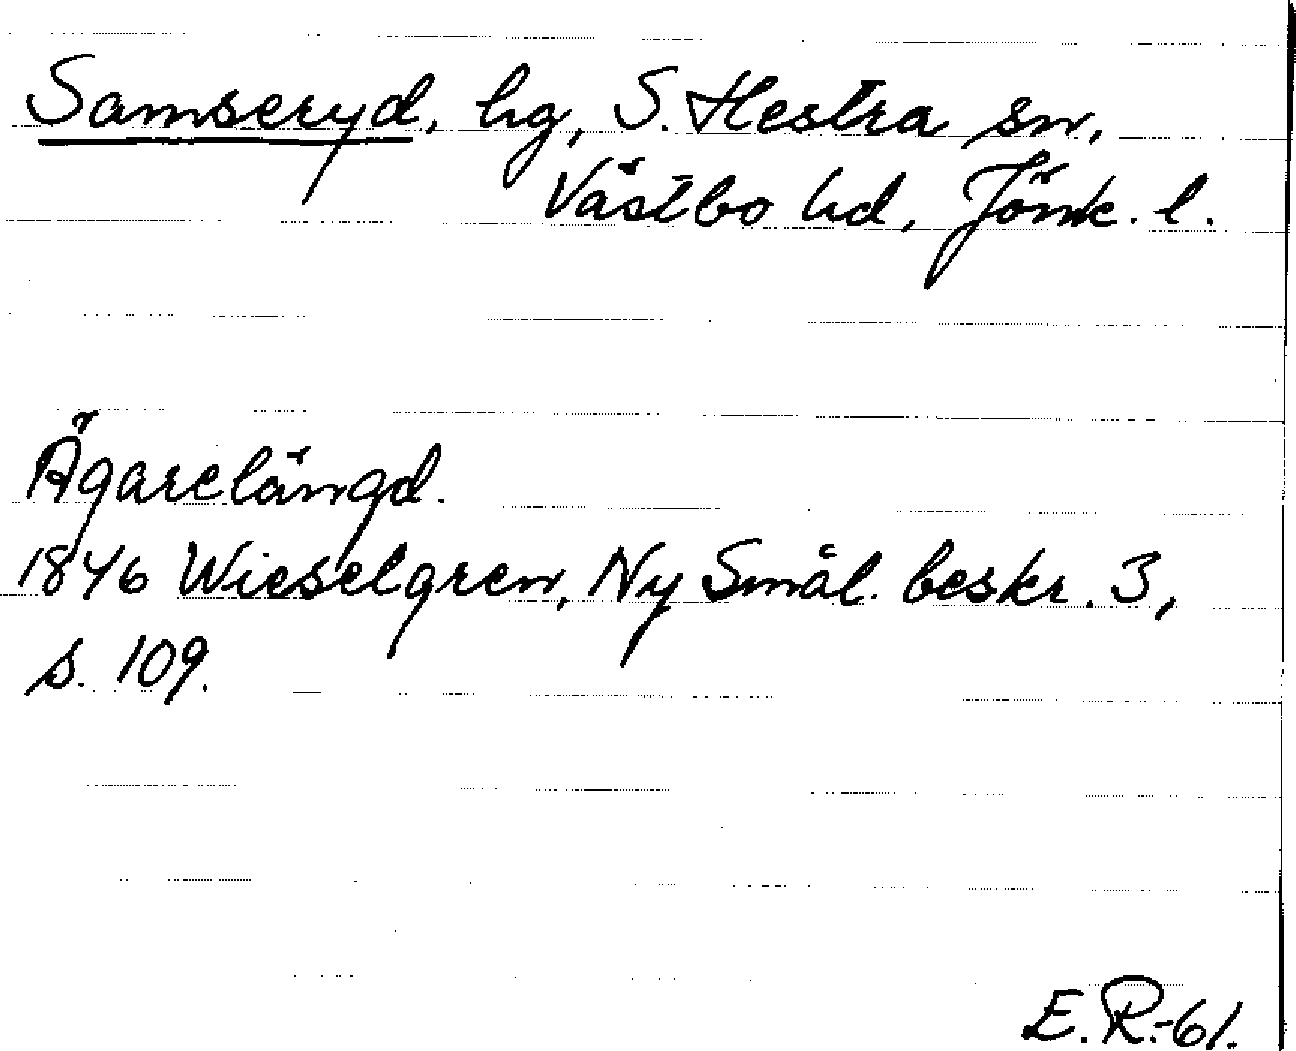 Samseryd, hg, S. Hestra sn,
Västbo hd, Jönk. l.
Ägarelängd.
1846 Wieselgren, Ny Smål. beskr. 3,
s. 109.
E.R.-61.